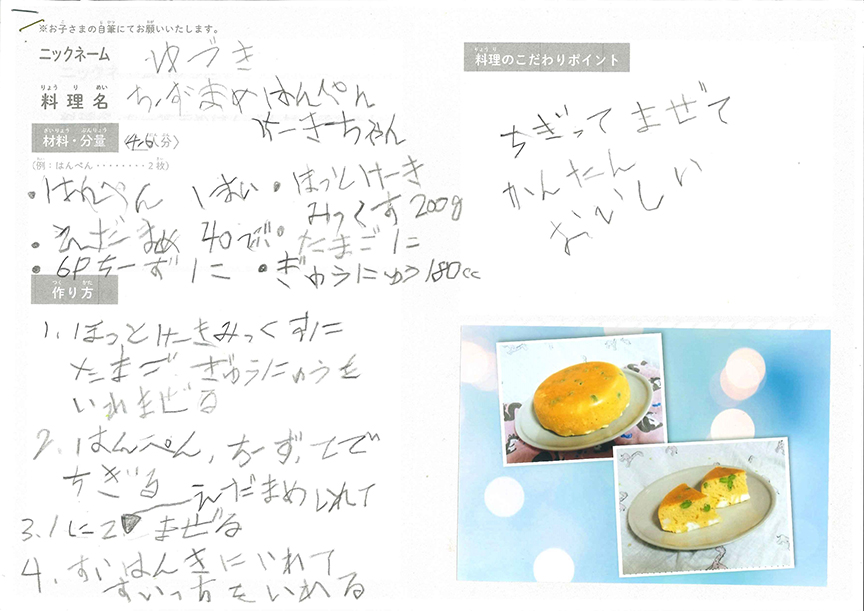 ※お子さまの自筆にてお願いいたします。
ニックネーム ゆづき
料理名 ちーずまめはんぺん
けーきーちゃん
材料・分量 (4~6人分)
(例:はんぺん・・・・・・・・2枚)
・はんぺん 1まい
・ほっとけーき
みっくす200g
・えだまめ 40つぶ
・たまご1こ
・6Pちーず1こ
・ぎゅうにゅう180cc
作り方
1. ほっとけーきみっくすに
たまご ぎゅうにゅうを
いれまぜる
2. はんぺん,ちーず,てで
ちぎる
えだまめいれて
3. 1に2 まぜる
4. すいはんきにいれて
すいっちをいれる
料理のこだわりポイント
ちぎってまぜて
かんたん
おいしい